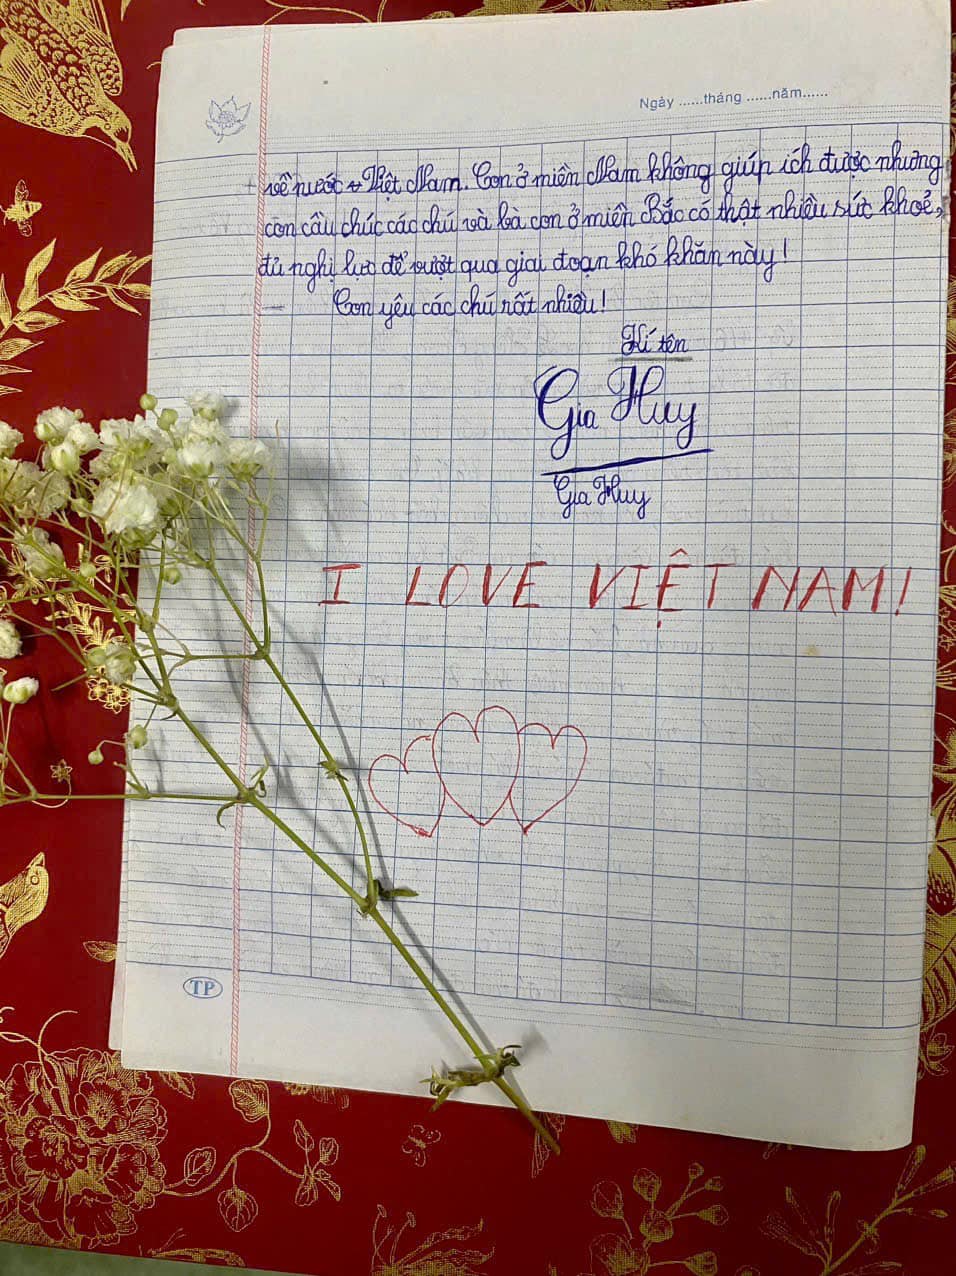 Ngày ......tháng ......năm......
về nước Việt Nam. Con ở miền Nam không giúp ích được nhưng
con cầu chúc các chú và bà con ở miền Bắc có thật nhiều sức khoẻ,
đủ nghị lực để vượt qua giai đoạn khó khăn này!
Con yêu các chú rất nhiều!
Kí tên
Gia Huy
Gia Huy
I LOVE VIỆT NAM!
TP